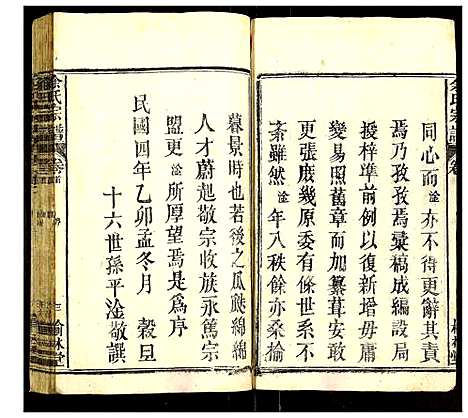 同心而淦亦不得更辭其責
焉乃孜孜焉彙稿成編設局
授梓準前例以復新增毋庸
變易照舊章而加纂葺安敢
更張庶幾原委有條世系不
紊雖然淦年八秩餘亦桑揄
暮景時也若後之瓜瓞綿綿
人才蔚起敬宗收族永篤宗
盟更淦所厚望焉是為序
民國四年乙卯孟冬月 穀旦
十六世孫平淦敬譔
余氏宗譜
卷首
序
三
榆林堂
余氏宗譜
卷